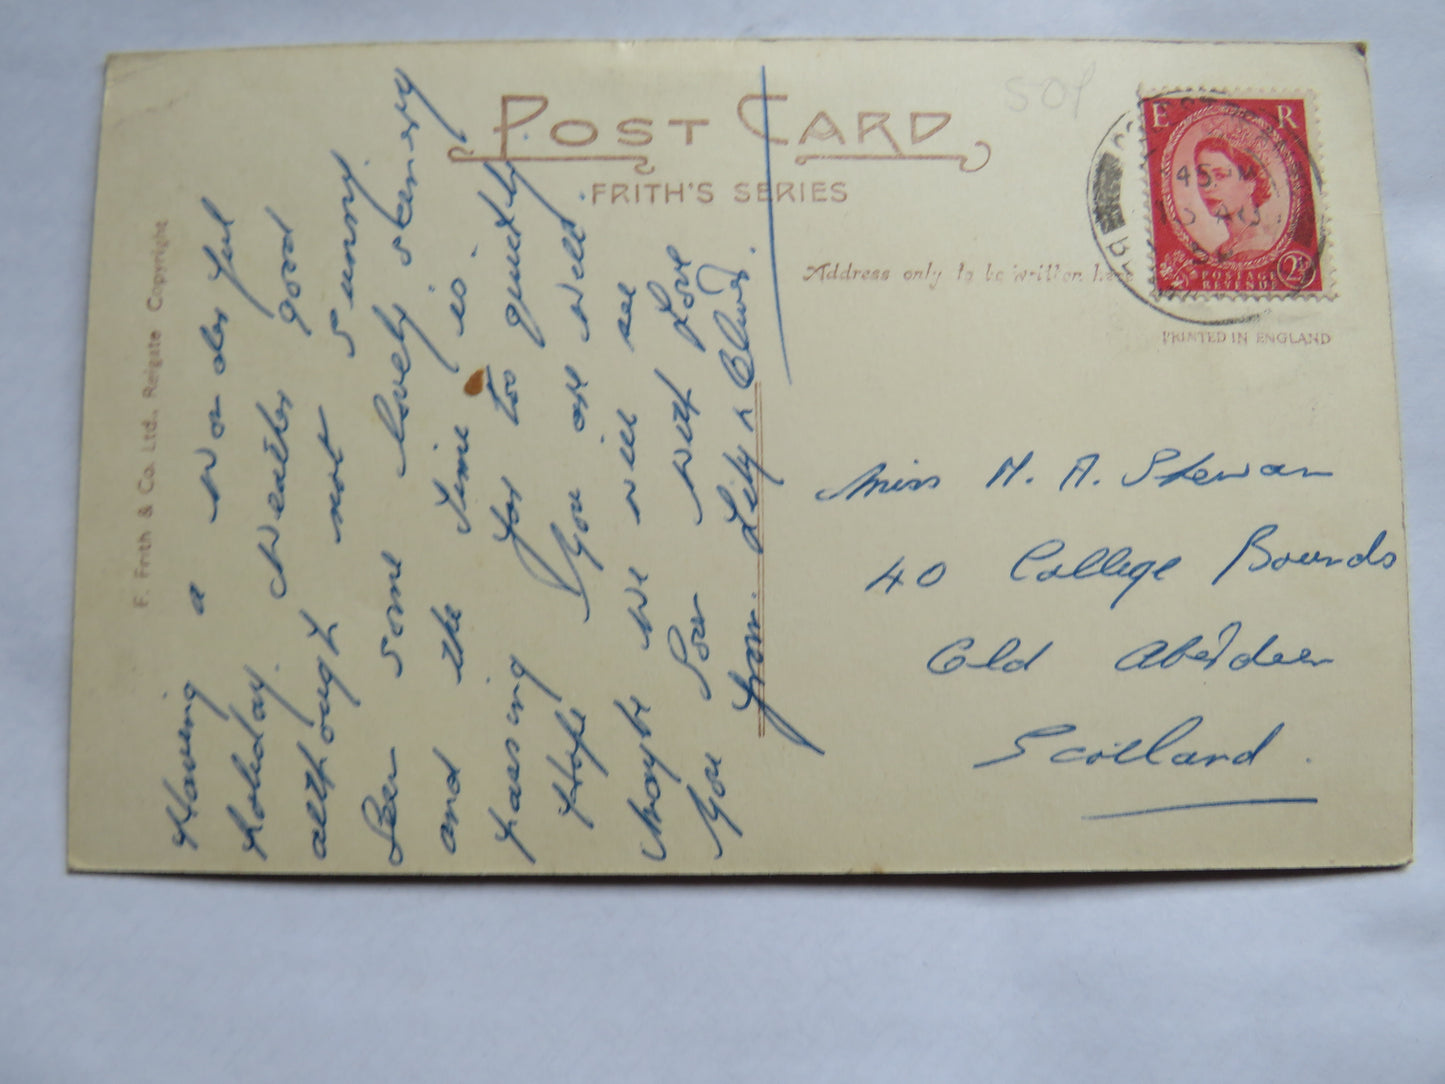 POST CARD
FRITH'S SERIES
Address only to be written here
PRINTED IN ENGLAND
F. Frith & Co. Ltd., Reigate Copyright
50p
E R
POSTAGE
REVENUE
2½
45 PM
AUG
Having a wonderful
holiday. Weather good
although not sunny
Seen some lovely scenery
and the time is
passing far too quickly
Hope you are well.
Maybe we will see
you soon with Love
from. Lily &
Miss M. A. Stewart
40 College Bounds
Old Aberdeen
Scotland.